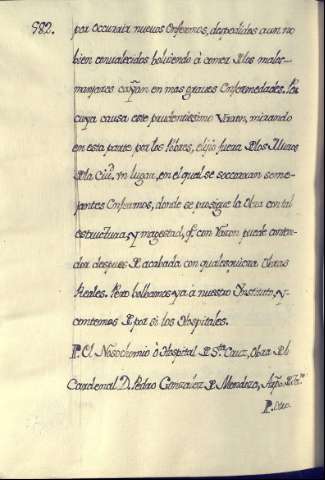 982.
por occurrir nuevos Enfermos, despedidos aun no
bien convalecidos bolviendo à comer los malos
manjares caȳan en mas graves Enfermedades. Por
cuya causa este prudentissimo Varon, mirando
en esta parte por los Pobres, elijió fuera de los Muros
de la Ciu.d vn lugar, en el qual se socorran seme-
jantes Enfermos, donde se prosigue la Obra con tal
estructura, y magestad, q.e con razon puede conten-
der despues de acabada con qualesquiera Obras
Reales. Pero bolbamos ya à nuestro Instituto, y
contemos de por si los Hospitales.
P. El Nosochomio ò Hospital de S.ta Cruz, Obra del
Cardenal D. Pedro Gonzalez de Mendoza, Arpo de To.
P. Otro